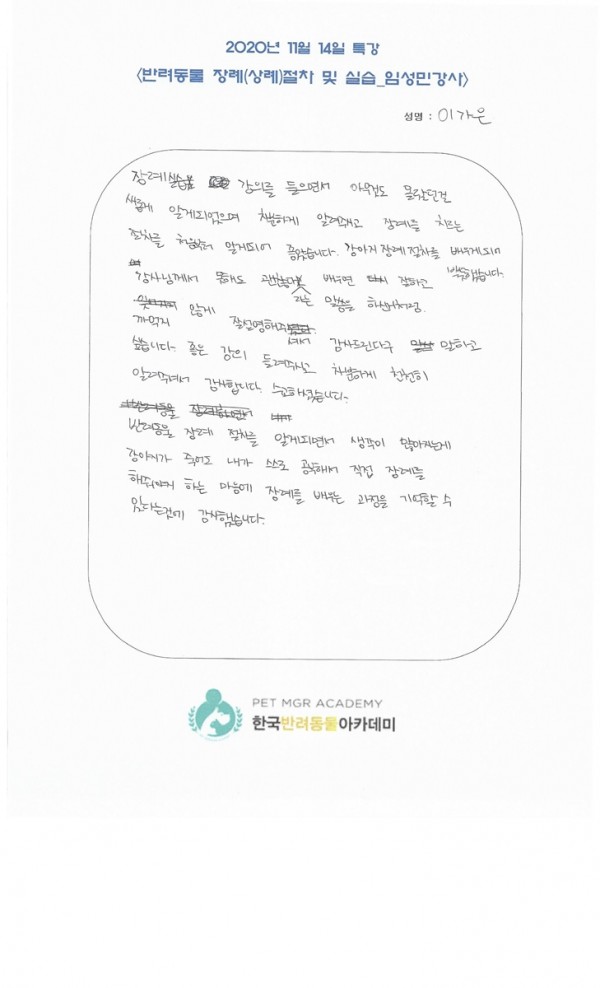 2020년 11월 14일 특강
<반려동물 장례(상례)절차 및 실습_임성민강사>
성명 : 이가은
장례 강의를 들으면서 아무것도 몰랐던걸
새롭게 알게되었으며 차분하게 알려주시고 장례를 치르는
절차를 처음부터 알게되어 좋았습니다. 강아지 장례 절차를 배우게되어
강사님께서 못해도 괜찮다 배우면 잘하고 뿌듯했습니다.
라는 말씀을 하신거처럼.
까먹지 않게 잘설명해주
셔서 감사드린다구 말하고
싶습니다. 좋은 강의 들려주시고 차분하게 천천히
알려주셔서 감사합니다. 수고하셨습니다.
반려동물 장례 절차를 알게되면서 생각이 많아지는게
강아지가 죽어도 내가 스스로 공부해서 직접 장례를
해줘야지 하는 마음에 장례를 배우는 과정을 기억할 수
있다는것에 감사했습니다.
PET MGR ACADEMY
한국반려동물아카데미